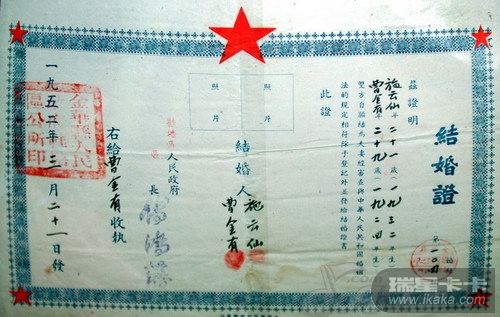 結婚證
茲證明
施云仙 二十一歲 一九三二年生
曹金有 二十九歲 一九二四年生
雙方自願結為夫妻經審查與中華人民共和國婚姻
法的規定相符除予登記外並發給結婚證書
此證
照片
照片
結婚人
施云仙
曹金有
人民政府
長
右給曹金有收執
一九五二年三月二十一日發
瑞星卡卡
www.ikaka.com